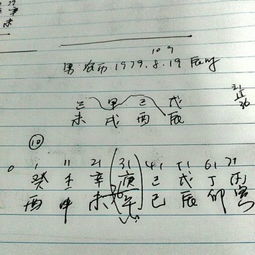 10 9
男 农历 1979.8.19 辰时
己 甲 己 戊
未 戌 酉 辰
⑩
0 1 11 21 31 41 51 61 71
癸 壬 辛 庚 己 戊 丁 丙
酉 申 未 午 巳 辰 卯 寅